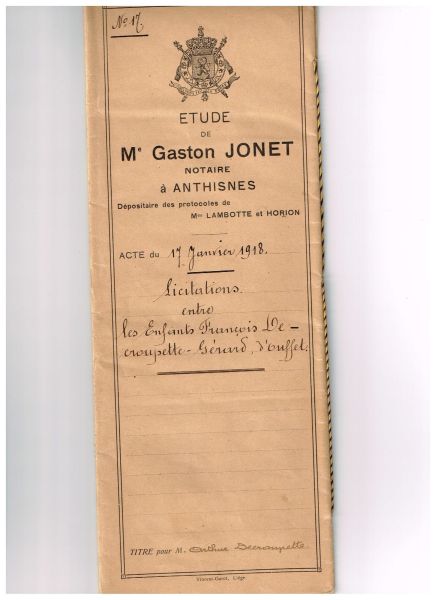 No 17.
ETUDE
DE
Me Gaston JONET
NOTAIRE
à ANTHISNES
Dépositaire des protocoles de
Mes LAMBOTTE et HORION
ACTE du 17 Janvier 1918.
Licitations
entre
les Enfants François De-
croupette-Gérard, d'Ouffet.
TITRE pour M. Arthur Decroupette
Liége.